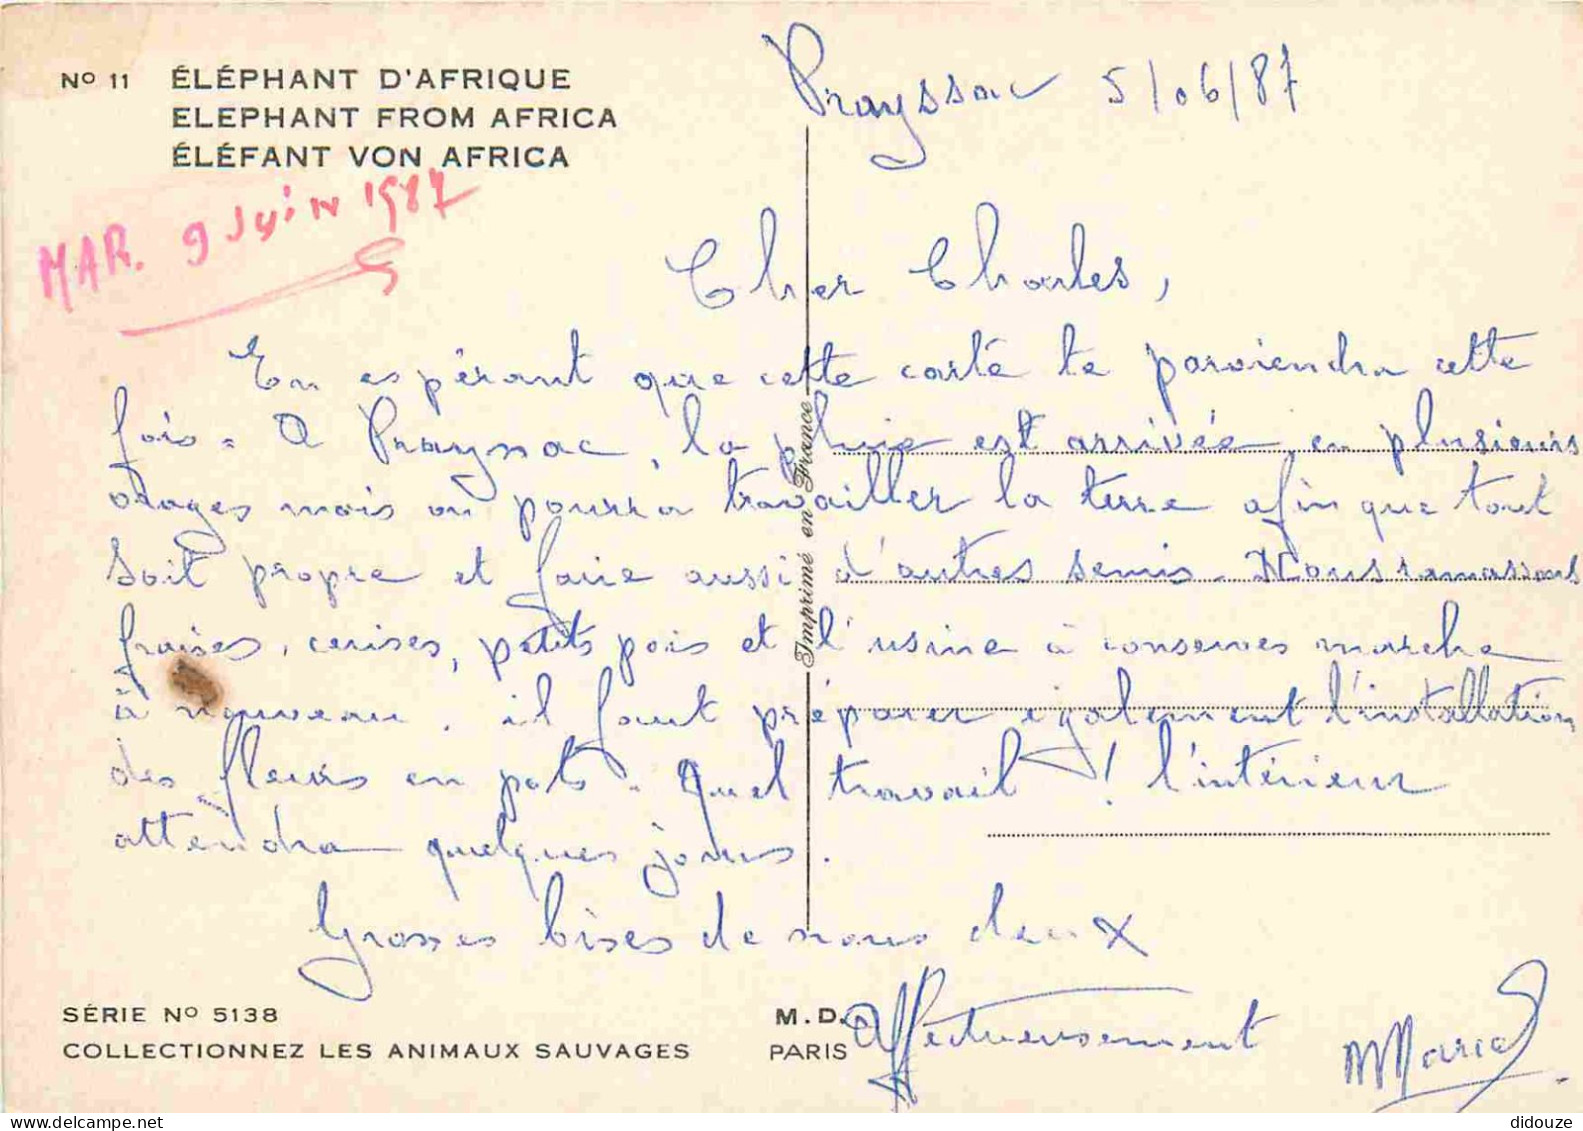 No 11 ÉLÉPHANT D'AFRIQUE
ELEPHANT FROM AFRICA
ÉLÉFANT VON AFRICA
MAR. 9 Juin 1987
Prayssac 5/06/87
Cher Charles,
En espérant que cette carte te parviendra cette
fois. A Prayssac, la pluie est arrivée en plusieurs
orages mais on pourra travailler la terre afin que tout
soit propre et faire aussi d'autres semis. Nous ramassons
fraises, cerises, petits pois et l'usine à conserves marche
à nouveau. il faut préparer également l'installation
des fleurs en pots. Quel travail ! l'intérieur
attendra quelques jours.
Grosses bises de nous deux
Affectueusement
Imprimé en France
SÉRIE No 5138
COLLECTIONNEZ LES ANIMAUX SAUVAGES
M.D.
PARIS
didouze